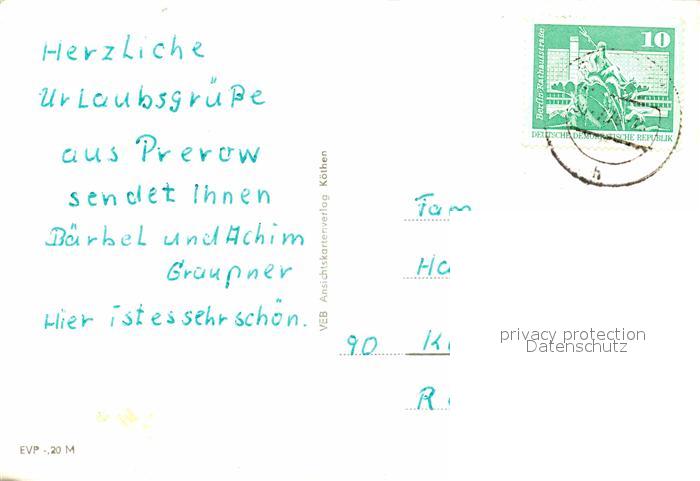 Herzliche
Urlaubsgrüße
aus Prerow
sendet Ihnen
Bärbel und Achim
Graupner
Hier ist es sehr schön.
EVP -,20 M
VEB Ansichtskartenverlag Köthen
10
Berlin-Rathausstraße
DEUTSCHE DEMOKRATISCHE REPUBLIK
h
Fam
Ha
90 K
R
privacy protection
Datenschutz